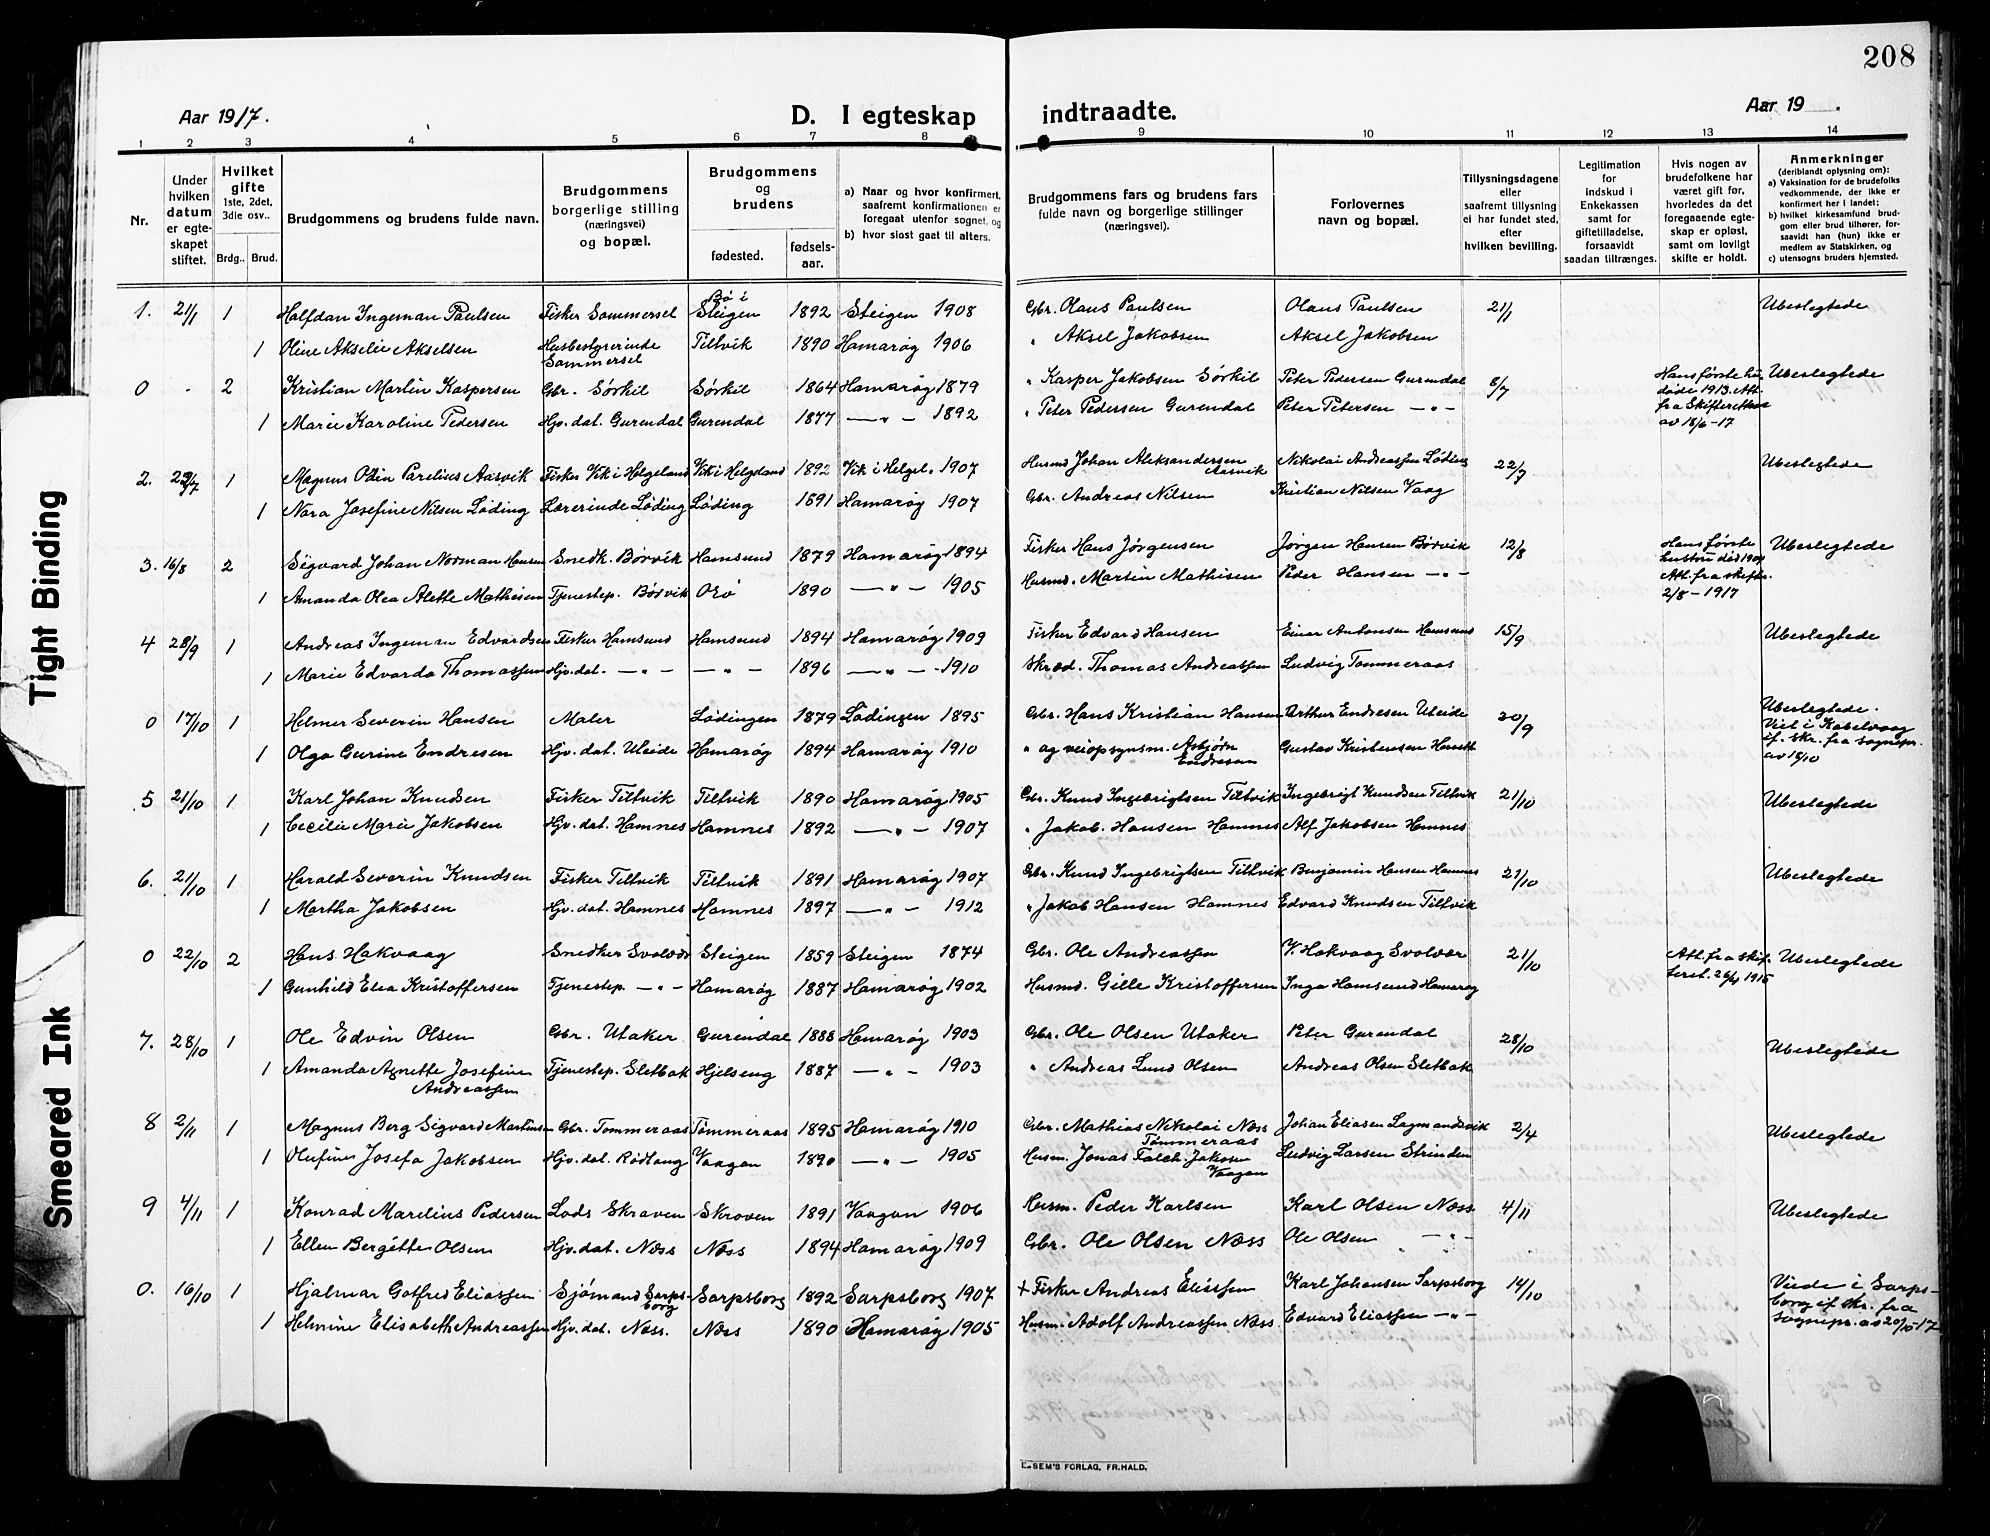 208
Aar 1917.
D. I egteskap indtraadte.
Aar 19 .
1 2 3 4 5 6 7 8 9 10 11 12 13 14
Nr.
Under hvilken datum er egteskapet stiftet.
Hvilket gifte 1ste, 2det, 3die osv..
Brdg.. Brud.
Brudgommens og brudens fulde navn.
Brudgommens borgerlige stilling (næringsvei) og bopæl.
Brudgommens og brudens
fødested. fødselsaar.
a) Naar og hvor konfirmert, saafremt konfirmationen er foregaat utenfor sognet, og
b) hvor sidst gaat til alters.
Brudgommens fars og brudens fars fulde navn og borgerlige stillinger (næringsvei).
Forlovernes navn og bopæl.
Tillysningsdagene eller saafremt tillysning ei har fundet sted, efter hvilken bevilling.
Legitimation for indskud i Enkekassen samt for giftetilladelse, forsaavidt saadan tiltrænges.
Hvis nogen av brudefolkene har været gift før, hvorledes da det foregaaende egteskap er opløst, samt om lovligt skifte er holdt.
Anmerkninger (deriblandt oplysning om):
a) Vaksination for de brudefolks vedkommende, der ikke er konfirmert her i landet;
b) hvilket kirkesamfund brudgom eller brud tilhører, forsaavidt han (hun) ikke er medlem av Statskirken, og
c) utensogns bruders hjemsted.
1. 21/1 1 Halfdan Ingeman Paulsen Fisker Sommersel Bø i Steigen 1892 Steigen 1908 Gbr. Olaus Paulsen Olaus Paulsen 21/1 Ubeslegtede
1 Oline Akselie Akselsen Husbestyrerinde Sommersel Tiltvik 1890 Hamarøy 1906 " Aksel Jakobsen Aksel Jakobsen
0 . 2 Kristian Martin Kaspersen Gbr. Sørkil Sørkil 1864 Hamarøy 1879 " Kasper Jakobsen Sørkil Peter Pedersen Gurendal 8/7 Hans første hu døde 1913. Att. fra Skifteretten av 18/6-17 Ubeslegtede
1 Marie Karoline Pedersen Hjv. dat. Gurendal Gurendal 1877 — " — 1892 " Peter Pedersen Gurendal Peter Petersen — " —
2. 22/7 1 Magnus Odin Parelius Aasvik Fisker Vik i Helgeland Vik i Helgeland 1892 Vik i Helgel. 1907 Husmd Johan Aleksandersen Aasvik Nikolai Andreassen Løding 22/7 Ubeslegtede
1 Nora Josefine Nilsen Løding Lærerinde Løding Løding 1891 Hamarøy 1907 Gbr. Andreas Nilsen Kristian Nilsen Vaag
3. 16/8 2 Sigvard Johan Norman Hansen Snedk. Børvik Hamsund 1879 Hamarøy 1894 Fisker Hans Jørgensen Jørgen Hansen Børvik 12/8 Hans første hustru død 1909 Att. fra skifter. 2/8 - 1917 Ubeslegtede
1 Amanda Olea Alette Mathisen Tjenestep. Børvik 1890 — " — 1905 Husmd. Martin Mathisen Peder Hansen — " —
4 28/9 1 Andreas Ingeman Edvardsen Fisker Hamsund Hamsund 1894 Hamarøy 1909 Fisker Edvard Hansen Einar Antonsen Hamsund 15/9 Ubeslegtede
1 Marie Edvarda Thomassen Hjv. dat. — " — — " — 1896 — " — 1910 Skræd. Thomas Andreassen Ludvig Tommeraas
0 17/10 1 Helmer Severin Hansen Maler Lødingen 1879 Lødingen 1895 Gbr. Hans Kristian Hansen Arthur Endresen Uteide 30/9 Ubeslegtede. Viet i Kabelvaag if. skr. fra sognepr. av 18/10
1 Olga Gurine Endresen Hjv. dat. Uteide Hamarøy 1894 Hamarøy 1910 " og veiopsynsm. Asbjørn Endresen Gustav Kristensen
5 21/10 1 Karl Johan Knudsen Fisker Tiltvik Tiltvik 1890 Hamarøy 1905 Gbr. Knud Ingebrigtsen Tiltvik Ingebrigt Knudsen Tiltvik 21/10 Ubeslegtede
1 Cecilie Marie Jakobsen Hjv. dat. Hamnes Hamnes 1892 — " — 1907 " Jakob Hansen Hamnes Alf Jakobsen Hamnes
6. 21/10 1 Harald Severin Knudsen Fisker Tiltvik Tiltvik 1891 Hamarøy 1907 Gbr. Knud Ingebrigtsen Tiltvik Benjamin Hansen Hamnes 21/10 Ubeslegtede
1 Martha Jakobsen Hjv. dat. Hamnes Hamnes 1897 — " — 1912 " Jakob Hansen Hamnes Edvard Knudsen Tiltvik
0 22/10 2 Hans Hakvaag Snedker Svolvær Steigen 1859 Steigen 1874 Gbr. Ole Andreassen V. Hakvaag Svolvær 21/10 Att. fra skifteret. 26/4 1915 Ubeslegtede
1 Gunhild Elea Kristoffersen Tjenestep. — " — Hamarøy 1887 Hamarøy 1902 Husmd. Gille Kristoffersen Inga Hamsund Hamarøy
7. 28/10 1 Ole Edvin Olsen Gbr. Utaker Gurendal 1888 Hamarøy 1903 Gbr. Ole Olsen Utaker Peter Gurendal 28/10 Ubeslegtede
1 Amanda Agnette Josefine Andreassen Tjenestep. Sletbak Hjelseng 1887 — " — 1903 " Andreas Lund Olsen Andreas Olsen Sletbak
8 2/11 1 Magnus Berg Sigvard Martinsen Gbr. Tommeraas Tømmeraas 1895 Hamarøy 1910 Gbr. Mathias Nikolai Næss Tømmeraas Johan Eliasen Lagmandsvik 2/4 Ubeslegtede
1 Olufine Josefa Jakobsen Hjv. dat. Rødtang Vaagan 1890 — " — 1905 Husm. Jonas Falch Jakobsen Vaagan Ludvig Larsen Strinden
9 4/11 1 Konrad Marelius Pedersen Lods Skraven Skroven 1891 Vaagan 1906 Husm. Peder Karlsen Karl Olsen Næss 4/11 Ubeslegtede
1 Ellen Bergitte Olsen Hjv. dat. Næss Næss 1894 Hamarøy 1909 Gbr. Ole Olsen Næss Ole Olsen — " —
0. 16/10 1 Hjalmar Gotfred Eliassen Sjømand Sarpsborg Sarpsborg 1892 Sarpsborg 1907 + Fisker Andreas Eliassen Karl Johansen Sarpsborg 14/10 Viede i Sarpsborg if skr. fra sognepr. av 20/10-17
1 Helmine Elisabeth Andreassen Hjv. dat. Næss. Næss 1890 Hamarøy 1905 Husm. Adolf Andreassen Næss Edvard Eliassen — " —
SEM'S FORLAG, FR.HALD.
Tight Binding
Smeared Ink